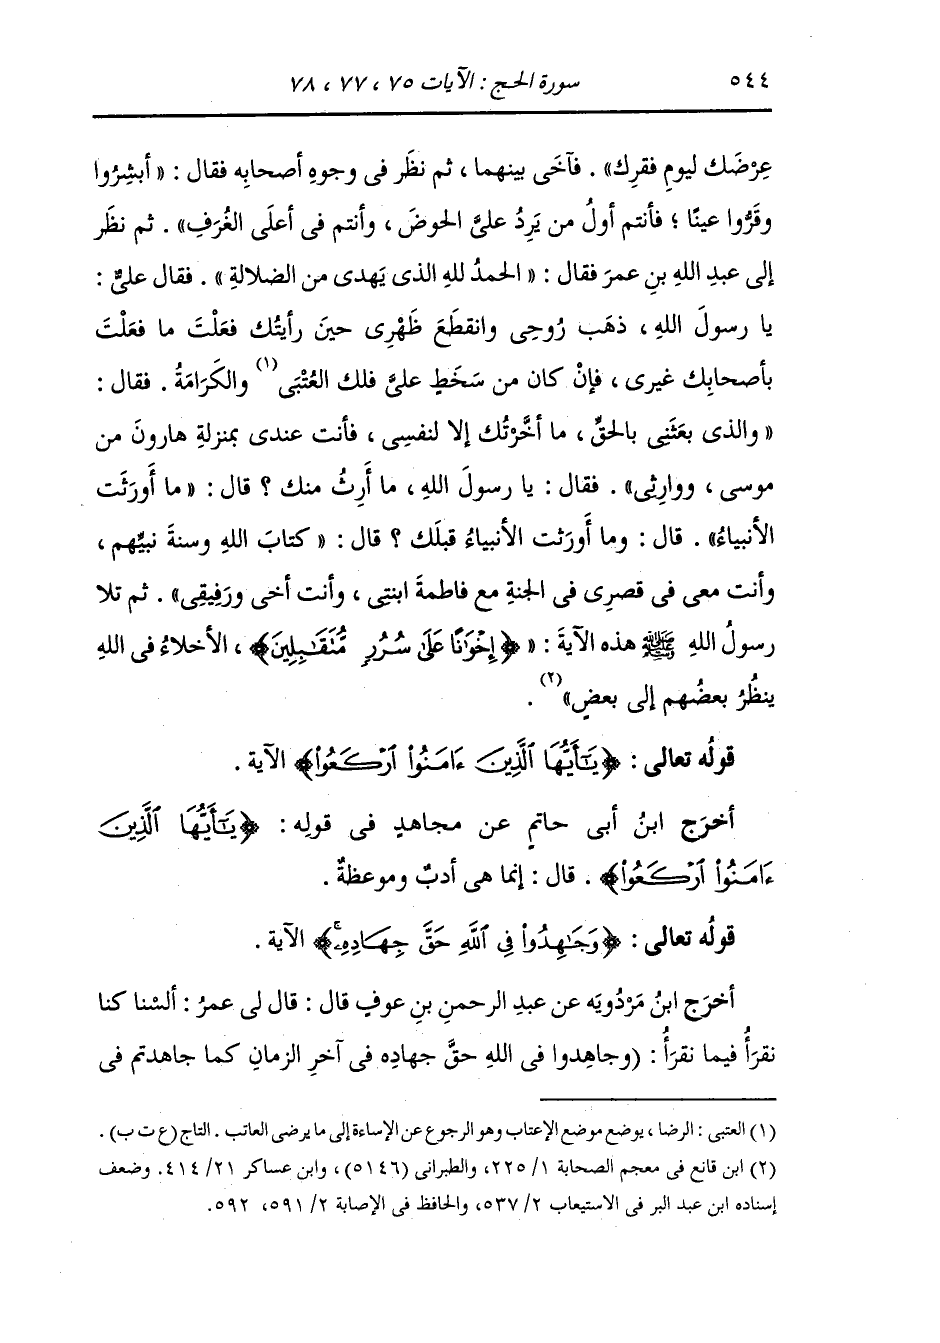 ٥٤٤ سورة الحج : الآيات ٧٥ ، ٧٧ ، ٧٨
عِرْضَك ليومِ فقرِك» . فآخَى بينهما ، ثم نظَر فى وجوهِ أصحابِه فقال : « أبشِرُوا
وقَرُّوا عينًا ؛ فأنتم أولُ من يَرِدُ علىَّ الحوضَ ، وأنتم فى أعلَى الغُرَفِ» . ثم نظَر
إلى عبدِ اللهِ بنِ عمرَ فقال : « الحمدُ للهِ الذى يَهدى من الضلالةِ » . فقال علىٌّ :
يا رسولَ اللهِ ، ذهَب رُوحِى وانقطَع ظَهْرِى حينَ رأيتُك فعَلْتَ ما فعَلْتَ
بأصحابِك غيرى ، فإنْ كان من سَخَطٍ علىَّ فلك العُتْبَى(١) والكَرَامَةُ . فقال :
« والذى بعَثَنِى بالحقِّ ، ما أخَّرْتُك إلا لنفسِى ، فأنت عندى بمنزلةِ هارونَ من
موسى ، ووارِثِى» . فقال : يا رسولَ اللهِ ، ما أَرِثُ منك ؟ قال : « ما أَورَثَت
الأنبياءُ» . قال : وما أَورَثت الأنبياءُ قبلَك ؟ قال : « كتابَ اللهِ وسنةَ نبيِّهم ،
وأنت معى فى قصرِى فى الجنةِ مع فاطمةَ ابنتِى ، وأنت أخى ورَفِيقِى» . ثم تلا
رسولُ اللهِ ﷺ هذه الآيةَ : « ﴿إِخْوَٰنًا عَلَىٰ سُرُرٍ مُّتَقَٰبِلِينَ﴾ ، الأخلاءُ فى اللهِ
ينظُرُ بعضُهم إلى بعضٍ»(٢) .
قولُه تعالى : ﴿يَٰٓأَيُّهَا ٱلَّذِينَ ءَامَنُوا۟ ٱرْكَعُوا۟﴾ الآية .
أخرَج ابنُ أبى حاتمٍ عن مجاهدٍ فى قولِه : ﴿يَٰٓأَيُّهَا ٱلَّذِينَ
ءَامَنُوا۟ ٱرْكَعُوا۟﴾ . قال : إنما هى أدبٌ وموعظةٌ .
قولُه تعالى : ﴿وَجَٰهِدُوا۟ فِى ٱللَّهِ حَقَّ جِهَادِهِۦۚ﴾ الآية .
أخرَج ابنُ مَرْدُويَه عن عبدِ الرحمنِ بنِ عوفٍ قال : قال لى عمرُ : ألسْنا كنا
نقرَأُ فيما نقرَأُ : (وجاهِدوا فى اللهِ حقَّ جهادِه فى آخرِ الزمانِ كما جاهدتم فى
(١) العتبى : الرضا ، يوضع موضع الإعتاب وهو الرجوع عن الإساءة إلى ما يرضى العاتب . التاج (ع ت ب) .
(٢) ابن قانع فى معجم الصحابة ١/ ٢٢٥، والطبرانى (٥١٤٦) ، وابن عساكر ٢١/ ٤١٤. وضعف
إسناده ابن عبد البر فى الاستيعاب ٢/ ٥٣٧، والحافظ فى الإصابة ٢/ ٥٩١، ٥٩٢.